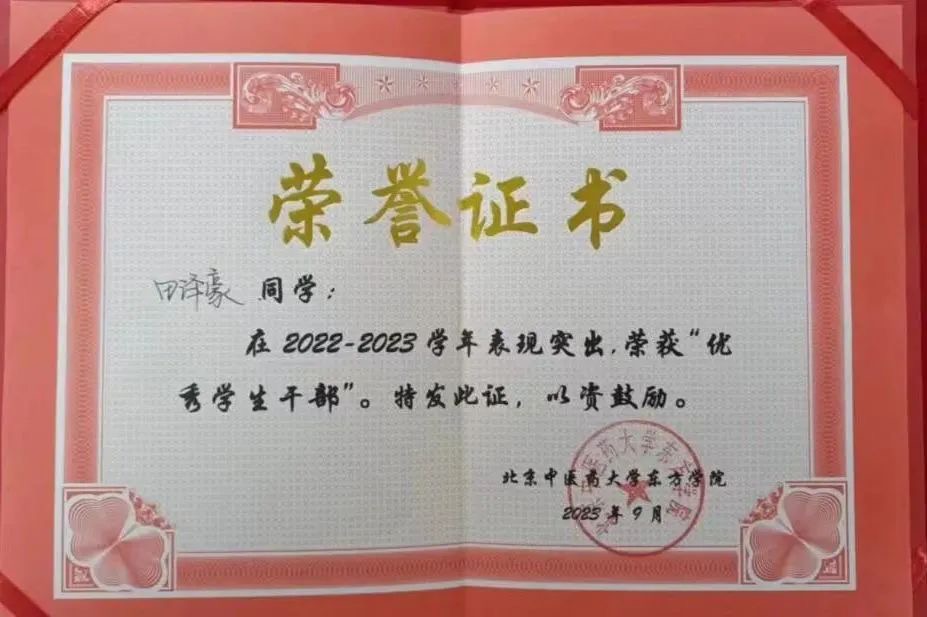 荣誉证书
田泽豪 同学：
在2022-2023学年表现突出,荣获“优
秀学生干部”。特发此证，以资鼓励。
北京中医药大学东方学院
2023年9月
北京中医药大学东方学院